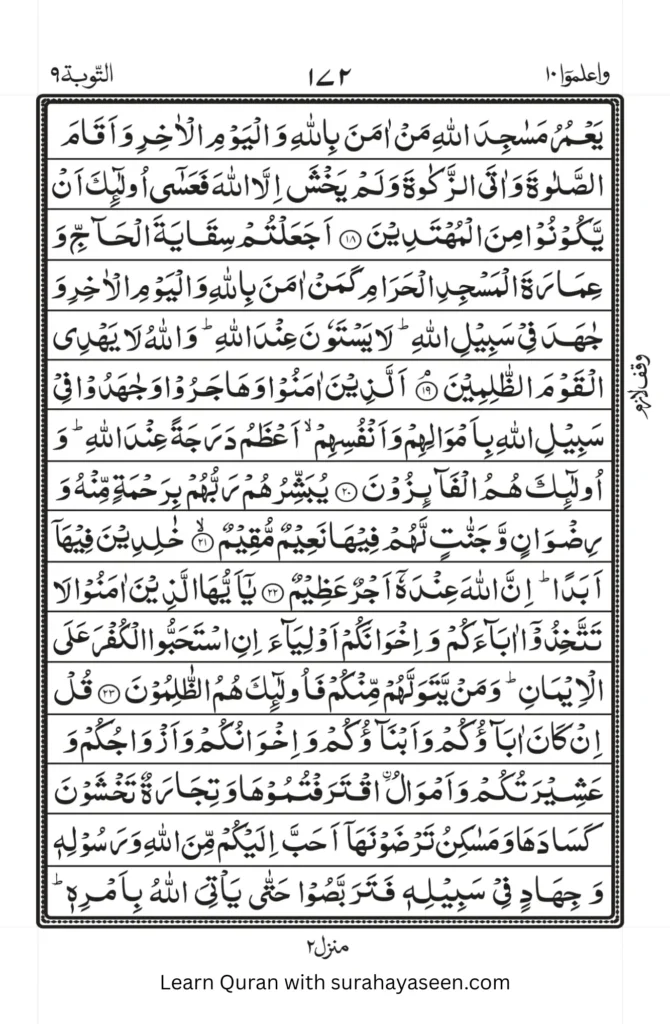 واعلموا ۱۰
۱۷۲
التّوبة ۹
يَعۡمُرُ مَسٰجِدَ اللّٰهِ مَنۡ اٰمَنَ بِاللّٰهِ وَالۡيَوۡمِ الۡاٰخِرِ وَاَقَامَ
الصَّلٰوةَ وَاٰتَى الزَّكٰوةَ وَلَمۡ يَخۡشَ اِلَّا اللّٰهَ فَعَسٰٓى اُولٰٓئِكَ اَنۡ
يَّكُوۡنُوۡا مِنَ الۡمُهۡتَدِيۡنَ ۝۱۸ اَجَعَلۡتُمۡ سِقَايَةَ الۡحَآجِّ وَ
عِمَارَةَ الۡمَسۡجِدِ الۡحَرَامِ كَمَنۡ اٰمَنَ بِاللّٰهِ وَالۡيَوۡمِ الۡاٰخِرِ وَ
جٰهَدَ فِىۡ سَبِيۡلِ اللّٰهِ ؕ لَا يَسۡتَوٗنَ عِنۡدَ اللّٰهِ ؕ وَاللّٰهُ لَا يَهۡدِى
الۡقَوۡمَ الظّٰلِمِيۡنَ ۘ‏ ۝۱۹ اَلَّذِيۡنَ اٰمَنُوۡا وَهَاجَرُوۡا وَجٰهَدُوۡا فِىۡ
وقف لازم
سَبِيۡلِ اللّٰهِ بِاَمۡوَالِهِمۡ وَاَنۡفُسِهِمۡ ۙ اَعۡظَمُ دَرَجَةً عِنۡدَ اللّٰهِ ؕ وَ
اُولٰٓئِكَ هُمُ الۡفَآئِزُوۡنَ ۝۲۰ يُبَشِّرُهُمۡ رَبُّهُمۡ بِرَحۡمَةٍ مِّنۡهُ وَ
رِضۡوَانٍ وَّجَنّٰتٍ لَّهُمۡ فِيۡهَا نَعِيۡمٌ مُّقِيۡمٌ ۙ ۝۲۱ خٰلِدِيۡنَ فِيۡهَاۤ
اَبَدًا ؕ اِنَّ اللّٰهَ عِنۡدَهٗۤ اَجۡرٌ عَظِيۡمٌ ۝۲۲ يٰۤاَيُّهَا الَّذِيۡنَ اٰمَنُوۡا لَا
تَتَّخِذُوۡۤا اٰبَآءَكُمۡ وَاِخۡوَانَكُمۡ اَوۡلِيَآءَ اِنِ اسۡتَحَبُّوا الۡكُفۡرَ عَلَى
الۡاِيۡمَانِ ؕ وَمَنۡ يَّتَوَلَّهُمۡ مِّنۡكُمۡ فَاُولٰٓئِكَ هُمُ الظّٰلِمُوۡنَ ۝۲۳ قُلۡ
اِنۡ كَانَ اٰبَآؤُكُمۡ وَاَبۡنَآؤُكُمۡ وَاِخۡوَانُكُمۡ وَاَزۡوَاجُكُمۡ وَ
عَشِيۡرَتُكُمۡ وَاَمۡوَالُ ۨاقۡتَرَفۡتُمُوۡهَا وَتِجَارَةٌ تَخۡشَوۡنَ
كَسَادَهَا وَمَسٰكِنُ تَرۡضَوۡنَهَاۤ اَحَبَّ اِلَيۡكُمۡ مِّنَ اللّٰهِ وَرَسُوۡلِهٖ
وَجِهَادٍ فِىۡ سَبِيۡلِهٖ فَتَرَبَّصُوۡا حَتّٰى يَاۡتِىَ اللّٰهُ بِاَمۡرِهٖ ؕ
منزل ۲
Learn Quran with surahayaseen.com